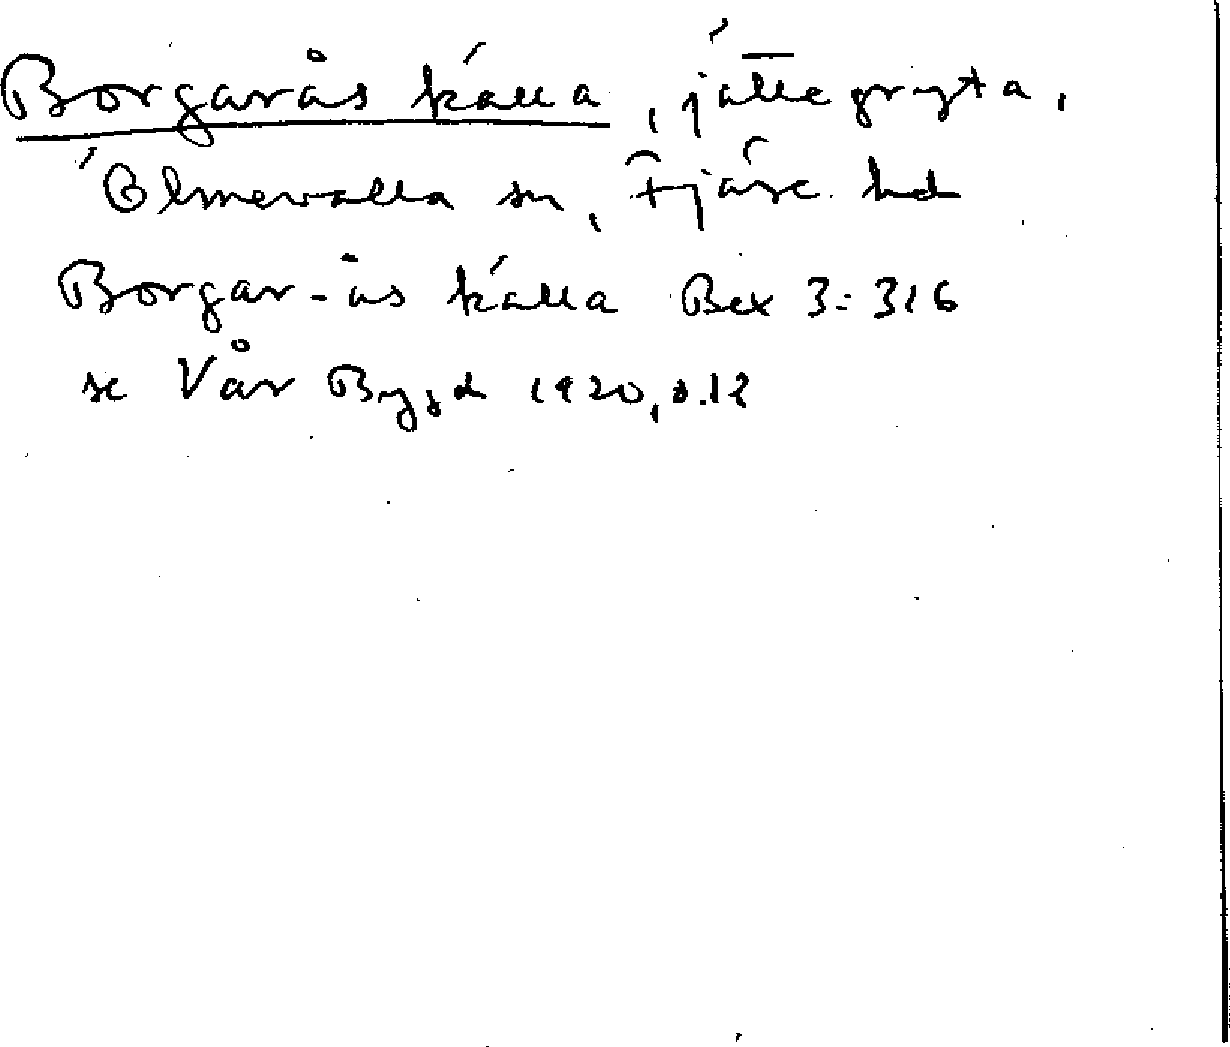 Borgarås källa, jättegryta,
Ölmevalla sn, Fjäre hd
Borgar-ås källa Bex 3:316
se Vår Bygd 1920, s.12